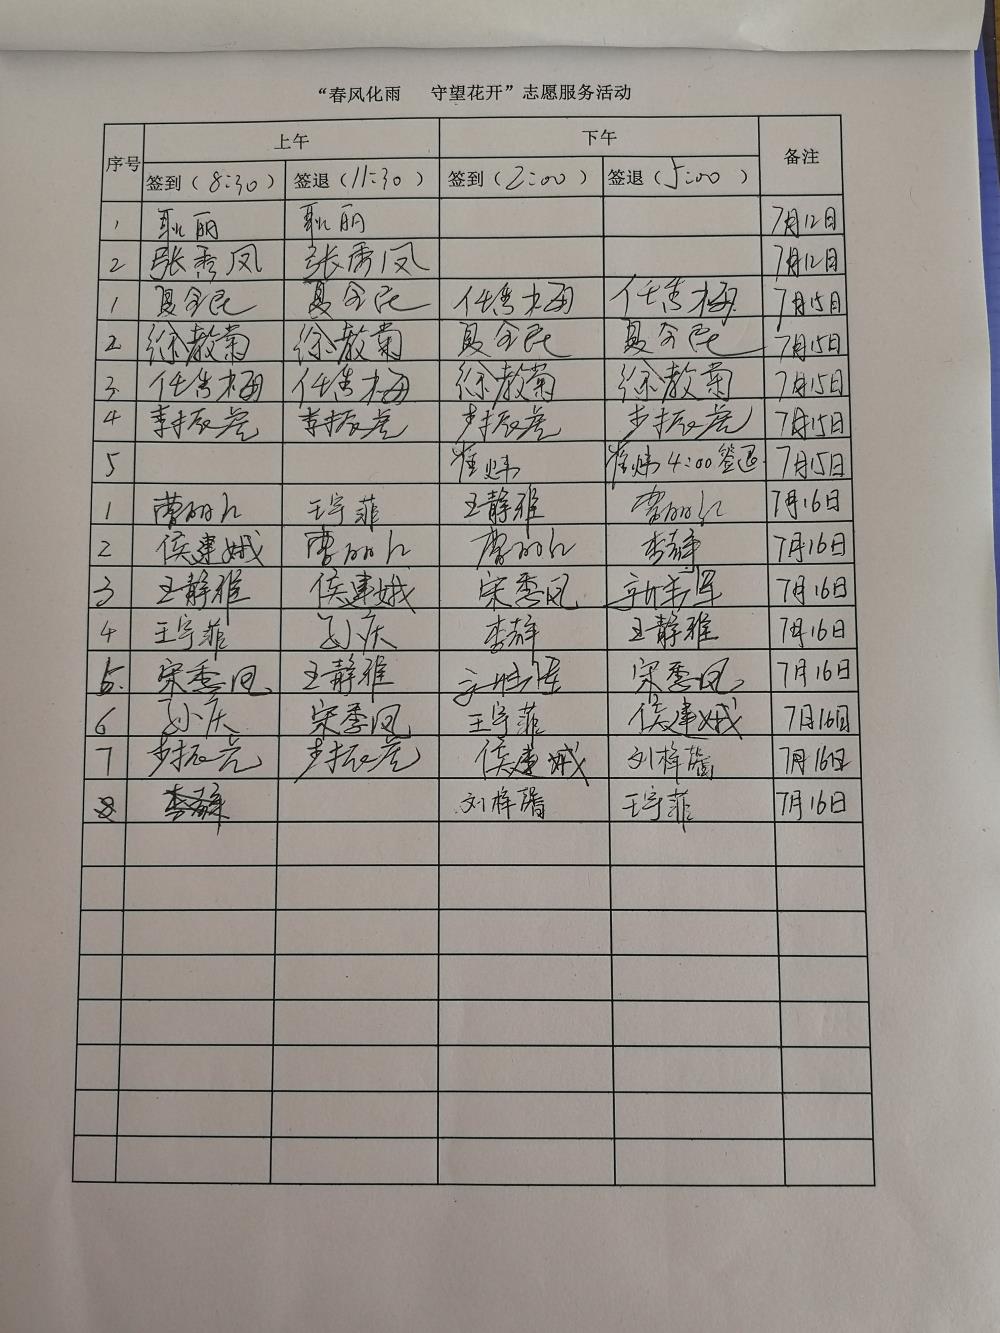 “春风化雨 守望花开”志愿服务活动
序号 上午 下午 备注
签到(8:30) 签退(11:30) 签到(2:00) 签退(5:00)
1 耿丽 耿丽 7月12日
2 张秀凤 张秀凤 7月12日
1 夏全民 夏全民 任秀梅 任秀梅 7月15日
2 徐教菊 徐教菊 夏全民 夏全民 7月15日
3 任秀梅 任秀梅 徐教菊 徐教菊 7月15日
4 7月15日
5 崔炜 崔炜 4:00签退 7月15日
1 曹丽红 王宇菲 王静雅 曹丽红 7月16日
2 侯建娥 曹丽红 曹丽红 李静 7月16日
3 王静雅 侯建娥 宋季凤 7月16日
4 王宇菲 孙庆 李静 王静雅 7月16日
5 宋季凤 王静雅 宋季凤 7月16日
6 孙庆 宋季凤 王宇菲 侯建娥 7月16日
7 侯建娥 刘梓馨 7月16日
8 刘梓馨 王宇菲 7月16日